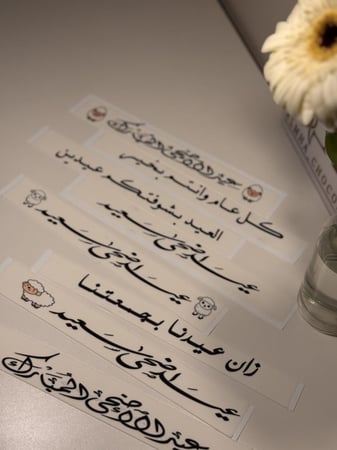 عيد الأضحى المبارك
كل عام وانتم بخير
العيد بشوفتكم عيدين
عيد أضحى سعيد
عيد أضحى سعيد
زان عيدنا بجمعتنا
عيد أضحى سعيد
عيد الأضحى المبارك
CHOCO